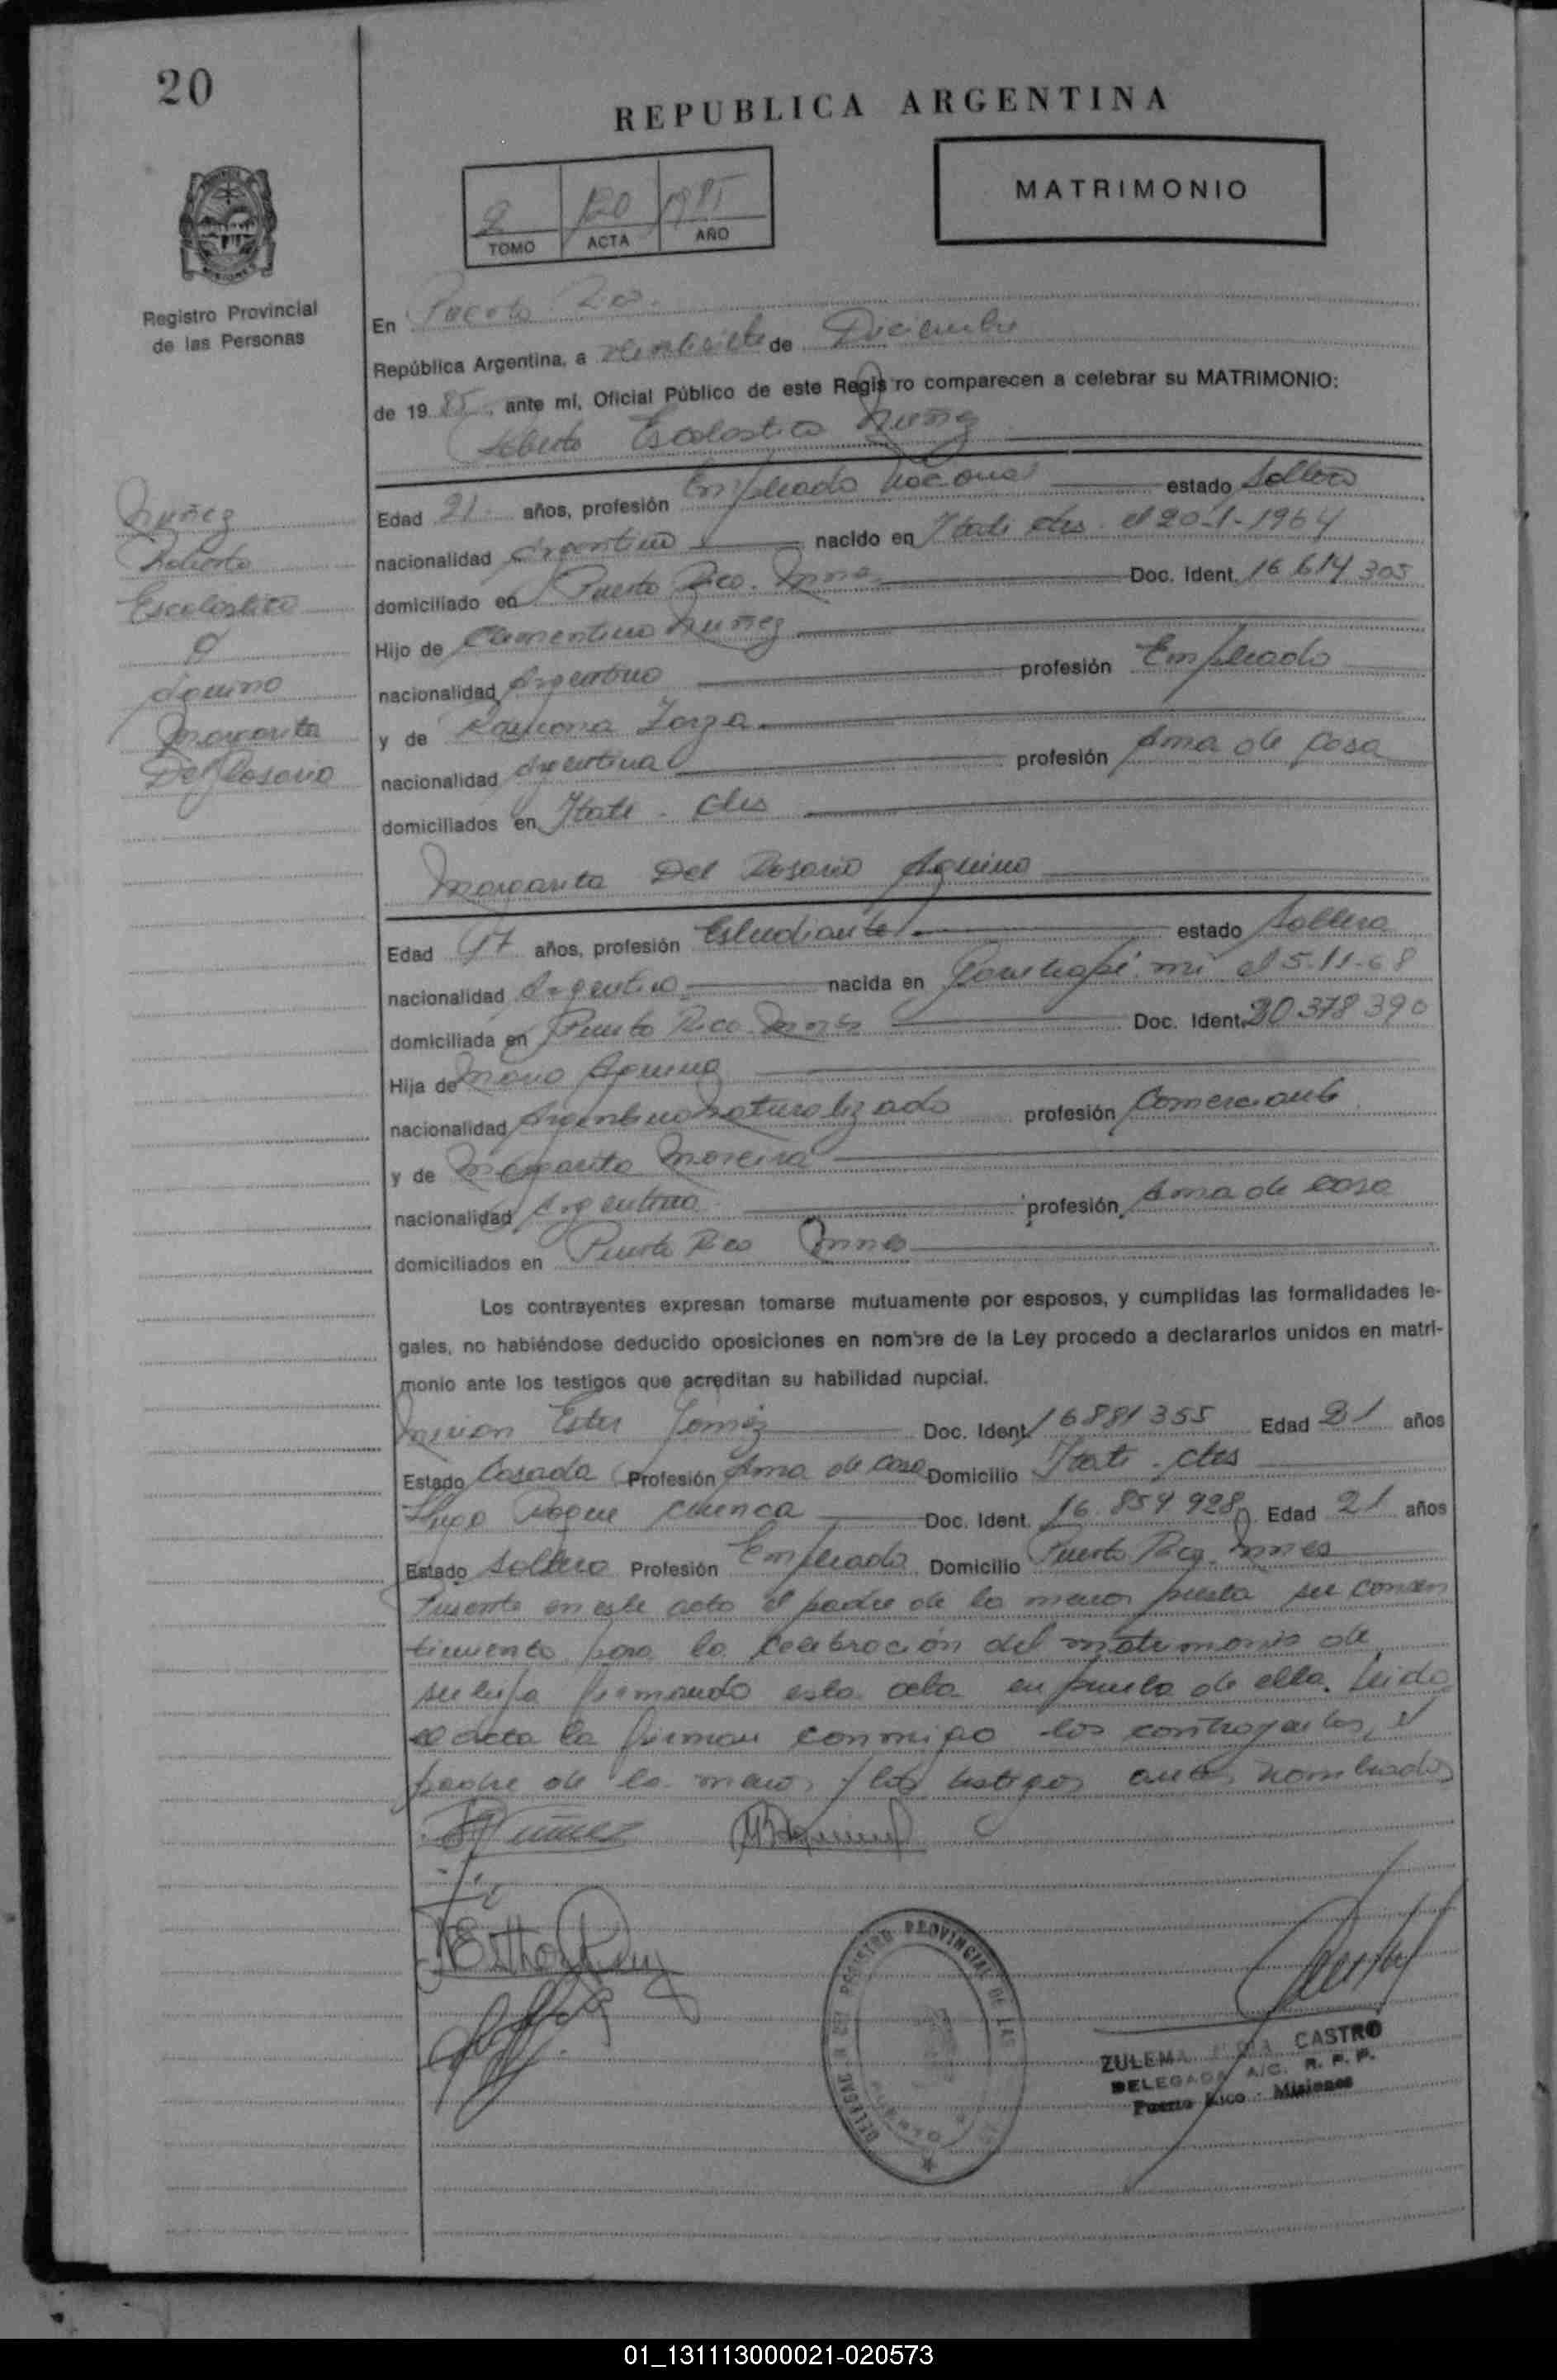 20
REPUBLICA ARGENTINA
MATRIMONIO
2 120 1985
TOMO ACTA AÑO
Registro Provincial
de las Personas
En Puerto Rico.
República Argentina, a veintisiete de Diciembre
de 19 85, ante mí, Oficial Público de este Regis ro comparecen a celebrar su MATRIMONIO:
Roberto Escolastico Nuñez
Nuñez
Roberto
Escolastico
Aquino
Margarita
Del Rosario
Edad 21 años, profesión Empleado Nacional estado Soltero
nacionalidad Argentino nacido en Itati Ctes. el 20-1-1964
domiciliado en Puerto Rico. Mnes Doc. Ident. 16 614 305
Hijo de Clementino Nuñez
nacionalidad Argentino profesión Empleado
y de Ramona
nacionalidad Argentina profesión Ama de Casa
domiciliados en Itati - Ctes
Margarita Del Rosario Aquino
Edad 17 años, profesión Estudiante estado Soltera
nacionalidad Argentina nacida en Garuhapé mi el 5-11-68
domiciliada en Puerto Rico Mnes Doc. Ident. 20.378 390
Hija de Aquino
nacionalidad Argentino Naturalizado profesión Comerciante
y de Margarita Moreira
nacionalidad Argentina profesión Ama de casa
domiciliados en Puerto Rico Mnes
Los contrayentes expresan tomarse mutuamente por esposos, y cumplidas las formalidades le-
gales, no habiéndose deducido oposiciones en nombre de la Ley procedo a declararlos unidos en matri-
monio ante los testigos que acreditan su habilidad nupcial.
Ester Doc. Ident. 16881355 Edad 21 años
Estado Casada Profesión Ama de casa Domicilio Itati - Ctes
Hugo Roque Cuenca Doc. Ident. 16.859 928 Edad 21 años
Estado Soltero Profesión Empleado Domicilio Puerto Rico. Mnes
Presente en este acto el padre de la menor presta su consen
timiento para la celebración del matrimonio de
su hija firmando esta acta en prueba de ello. Leida
el acta la firman conmigo los contrayentes, el
padre de la menor y los testigos antes nombrados
REGISTRO PROVINCIAL DE LAS
ZULEMA CASTRO
DELEGADA A/C. R. P. P.
Puerto Rico - Misiones
01_131113000021-020573